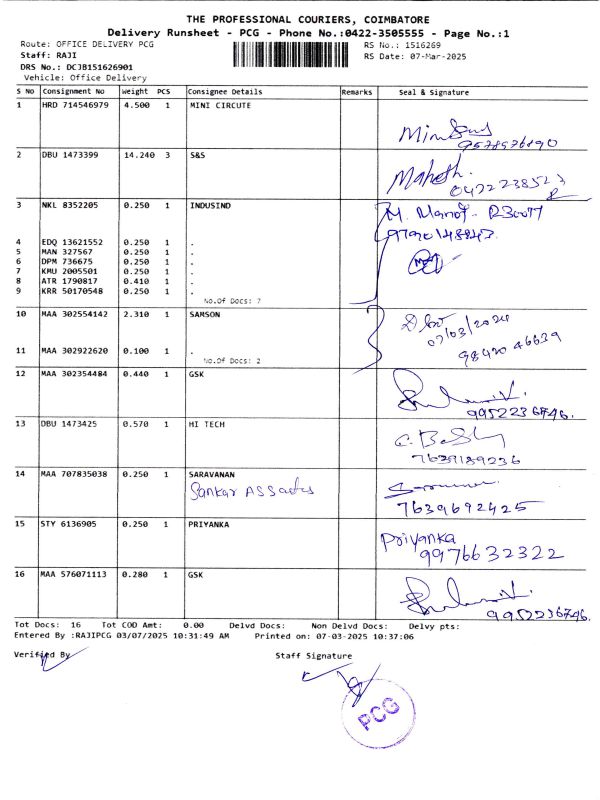 THE PROFESSIONAL COURIERS, COIMBATORE
Delivery Runsheet - PCG - Phone No.:0422-3505555 - Page No.:1
Route: OFFICE DELIVERY PCG RS No.: 1516269
Staff: RAJI RS Date: 07-Mar-2025
DRS No.: DCJB151626901
Vehicle: Office Delivery
S No Consignment No Weight PCS Consignee Details Remarks Seal & Signature
1 HRD 714546979 4.500 1 MINI CIRCUTE
2 DBU 1473399 14.240 3 S&S
Mahesh.
3 NKL 8352205 0.250 1 INDUSIND
M. Manoj
9790148843
4 EDQ 13621552 0.250 1 .
5 MAN 327567 0.250 1 .
6 DPM 736675 0.250 1 .
7 KMU 2005501 0.250 1 .
8 ATR 1790817 0.410 1 .
9 KRR 50170548 0.250 1 .
No.Of Docs: 7
10 MAA 302554142 2.310 1 SAMSON
07/03/2024
98420 46639
11 MAA 302922620 0.100 1 .
No.Of Docs: 2
12 MAA 302354484 0.440 1 GSK
9952236746.
13 DBU 1473425 0.570 1 HI TECH
7639189236
14 MAA 707835038 0.250 1 SARAVANAN
Sankar
7639692425
15 STY 6136905 0.250 1 PRIYANKA
Priyanka
9976632322
16 MAA 576071113 0.280 1 GSK
9952236746.
Tot Docs: 16 Tot COD Amt: 0.00 Delvd Docs: Non Delvd Docs: Delvy pts:
Entered By :RAJIPCG 03/07/2025 10:31:49 AM Printed on: 07-03-2025 10:37:06
Verified By Staff Signature
PCG